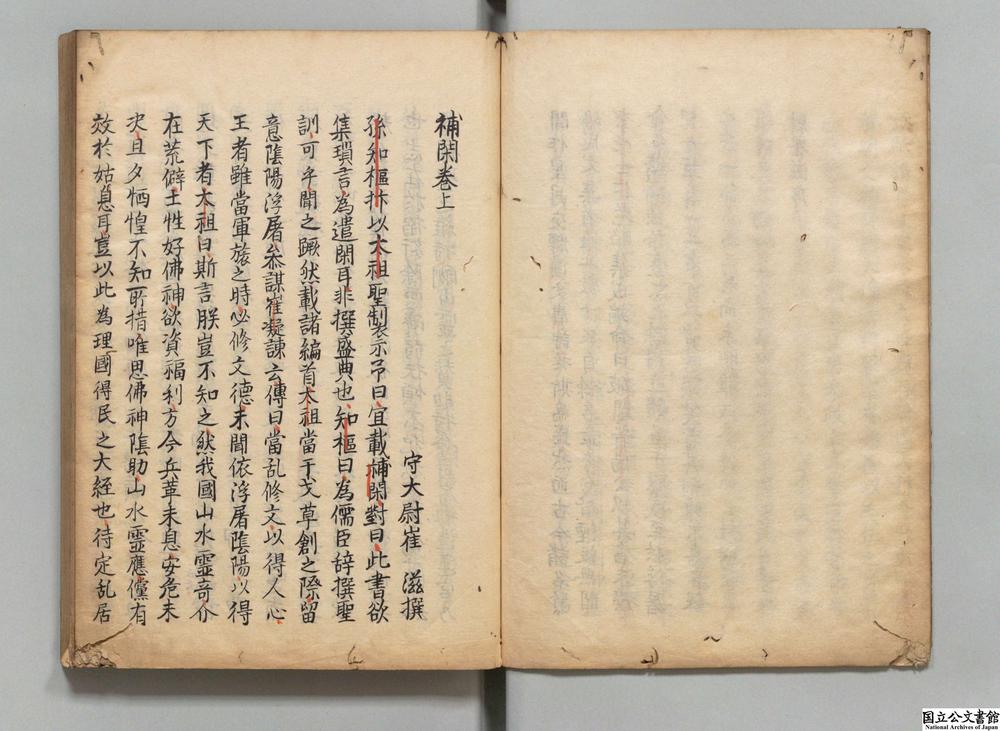 補閑巻上
守大尉崔　滋撰
孫知樞抃以太祖聖制示予曰宜載補閑對曰此書欲
集瑣言為遣閑耳非撰盛典也知樞曰為儒臣辞撰聖
訓可乎聞之蹶然載諸編首太祖當干戈草創之際留
意陰陽浮屠叅謀崔凝諫云傳曰當乱修文以得人心
王者雖當軍旅之時必修文德未聞依浮屠陰陽以得
天下者太祖曰斯言朕豈不知之然我國山水靈奇介
在荒僻土性好佛神欲資福利方今兵革未息安危未
决旦夕恓惶不知所措唯思佛神陰助山水靈應儻有
效於姑息耳豈以此為理國得民之大経也待定乱居
国立公文書館
National Archives of Japan